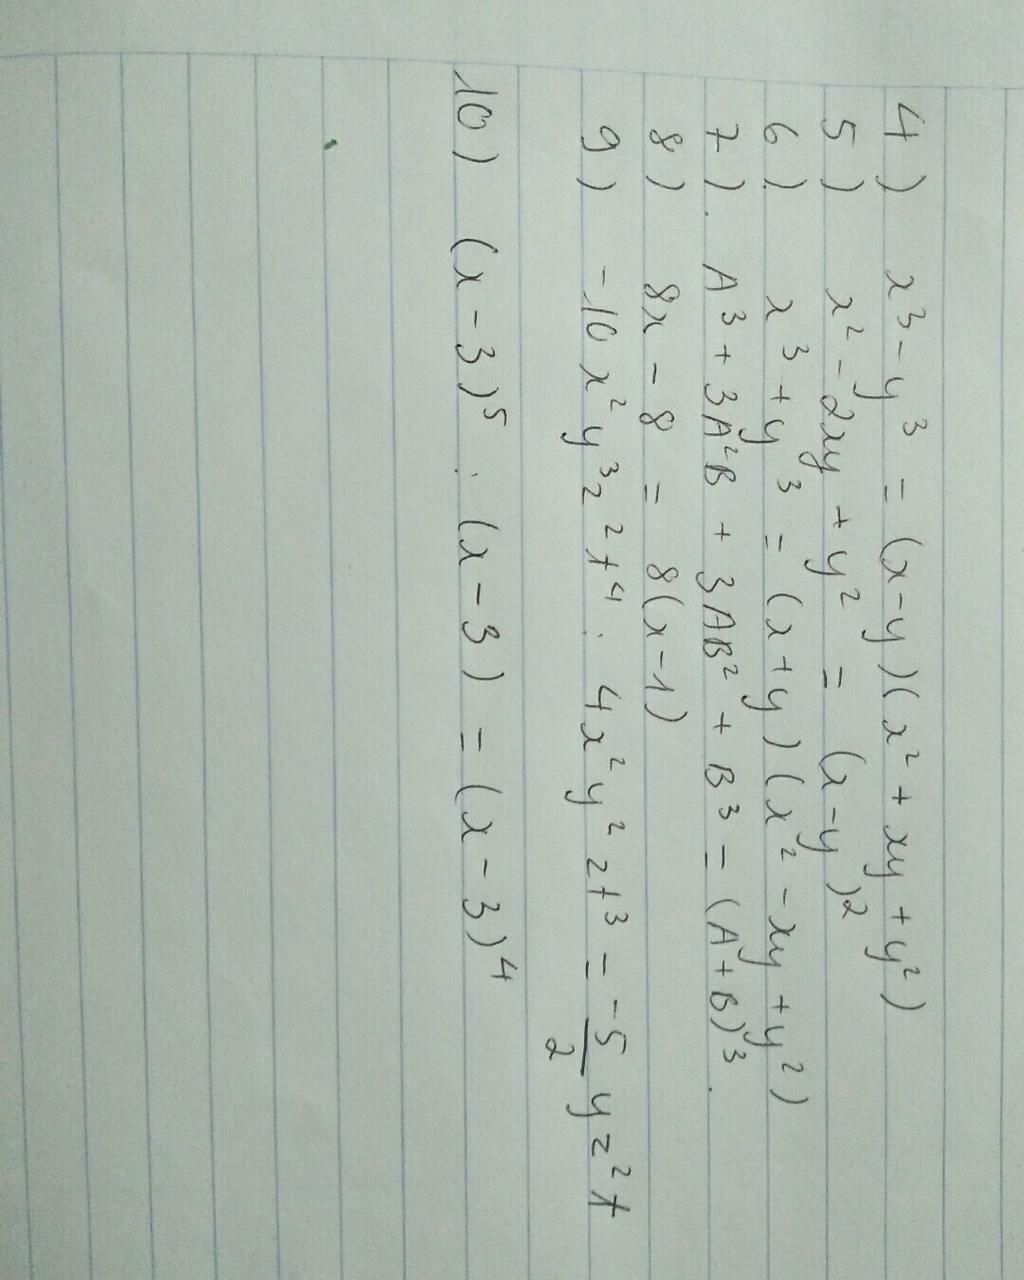 4) x³ - y³ = (x-y)(x² + xy + y²)
5) x² - 2xy + y² = (x-y)²
6) x³ + y³ = (x+y)(x² - xy + y²)
7). A³ + 3A²B + 3AB² + B³ = (A+B)³.
8) 8x - 8 = 8(x-1)
9) -10x²y³z²t⁴ : 4x²y²zt³ = -5/2 yz²t
10) (x-3)⁵ : (x-3) = (x-3)⁴